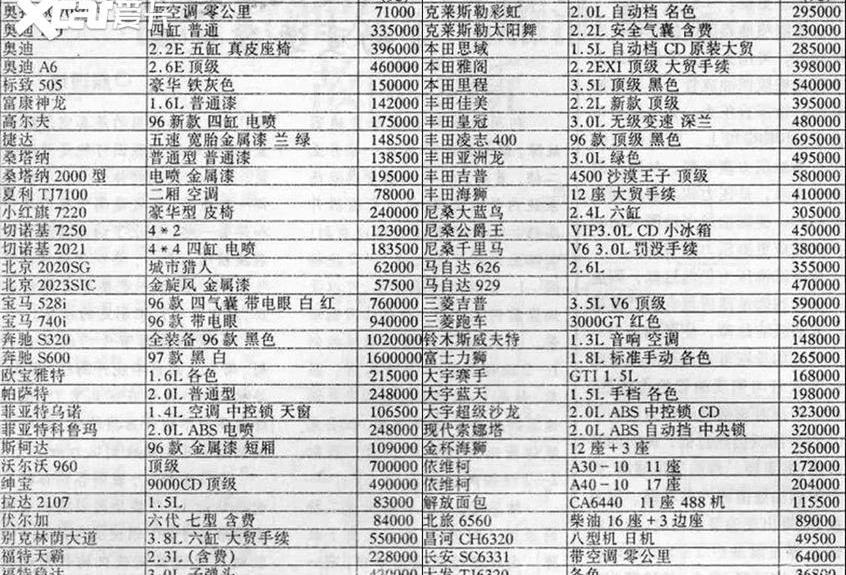 带空调 零公里 71000 克莱斯勒彩虹 2.0L 自动档 各色 295000
奥迪 四缸 普通 335000 克莱斯勒太阳舞 2.2L 安全气囊 含费 230000
奥迪 2.2E 五缸 真皮座椅 396000 本田思域 1.5L 自动档 CD 原装大贸 285000
奥迪 A6 2.6E 顶级 460000 本田雅阁 2.2EXI 顶级 大贸手续 398000
标致 505 豪华 铁灰色 150000 本田里程 3.5L 顶级 黑色 540000
富康神龙 1.6L 普通漆 142000 丰田佳美 2.2L 新款 顶级 395000
高尔夫 96 新款 四缸 电喷 175000 丰田皇冠 3.0L 无级变速 深兰 480000
捷达 五速 宽胎金属漆 兰 绿 148500 丰田凌志 400 96 款 顶级 黑色 695000
桑塔纳 普通型 普通漆 138500 丰田亚洲龙 3.0L 绿色 495000
桑塔纳 2000 型 电喷 金属漆 195000 丰田吉普 4500 沙漠王子 顶级 580000
夏利 TJ7100 二厢 空调 78000 丰田海狮 12 座 大贸手续 410000
小红旗 7220 豪华型 皮椅 240000 尼桑大蓝鸟 2.4L 六缸 305000
切诺基 7250 4*2 123000 尼桑公爵王 VIP3.0L CD 小冰箱 450000
切诺基 2021 4*4 四缸 电喷 183500 尼桑千里马 V6 3.0L 罚没手续 380000
北京 2020SG 城市猎人 62000 马自达 626 2.6L 355000
北京 2023SIC 金旋风 金属漆 57500 马自达 929 470000
宝马 528i 96 款 四气囊 带电眼 白 红 760000 三菱吉普 3.5L V6 顶级 590000
宝马 740i 96 款 带电眼 940000 三菱跑车 3000GT 红色 560000
奔驰 S320 全装备 96 款 黑色 1020000 铃木斯威夫特 1.3L 音响 空调 148000
奔驰 S600 97 款 黑 白 1600000 富士力狮 1.8L 标准手动 各色 265000
欧宝雅特 1.6L 各色 215000 大宇赛手 GTI 1.5L 168000
帕萨特 2.0L 普通型 248000 大宇蓝天 1.5L 手档 各色 198000
菲亚特乌诺 1.4L 空调 中控锁 天窗 106500 大宇超级沙龙 2.0L ABS 中控锁 CD 323000
菲亚特科鲁玛 2.0L ABS 电喷 248000 现代索娜塔 2.0L ABS 自动挡 中央锁 320000
斯柯达 96 款 金属漆 短厢 109000 金杯海狮 12 座+3 座 256000
沃尔沃 960 顶级 700000 依维柯 A30-10 11 座 172000
绅宝 9000CD 顶级 490000 依维柯 A40-10 17 座 204000
拉达 2107 1.5L 83000 解放面包 CA6440 11 座 488 机 115500
伏尔加 六代 七型 含费 84000 北旅 6560 柴油 16 座+3 边座 89000
别克林荫大道 3.8L 六缸 大贸手续 550000 昌河 CH6320 八型机 日机 49500
福特天霸 2.3L (含费) 228000 长安 SC6331 带空调 零公里 64000